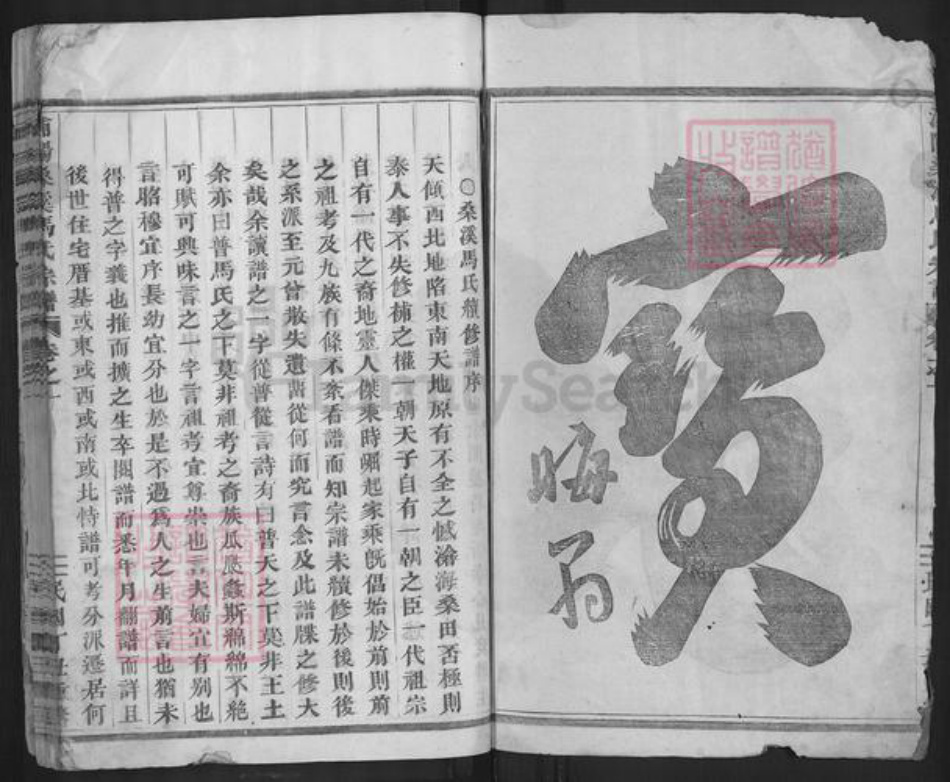 寶
晦翁
○桑溪馬氏續修譜序
天傾西北地陷東南天地原有不全之憾滄海桑田否極則
泰人事不失修補之權一朝天子自有一朝之臣一代祖宗
自有一代之裔地靈人傑乘時崛起家乘旣倡始於前則前
之祖考及九族有條不紊看譜而知宗譜未續修於後則後
之系派至元曾散失遺畱從何而究言念及此譜牒之修大
矣哉余讀譜之一字從普從言詩有曰普天之下莫非王土
余亦曰普馬氏之下莫非祖考之裔族瓜瓞螽斯綿綿不絕
可賦可興味言之一字言祖考宜尊崇也言夫婦宜有別也
言昭穆宜序長幼宜分也於是不過爲人之生前言也猶未
得普之字義也推而擴之生卒閱譜而悉年月翻譜而詳且
後世住宅厝基或東或西或南或北恃譜可考分派遷居何
浦陽桑溪馬氏宗譜 卷之一
FamilySearch